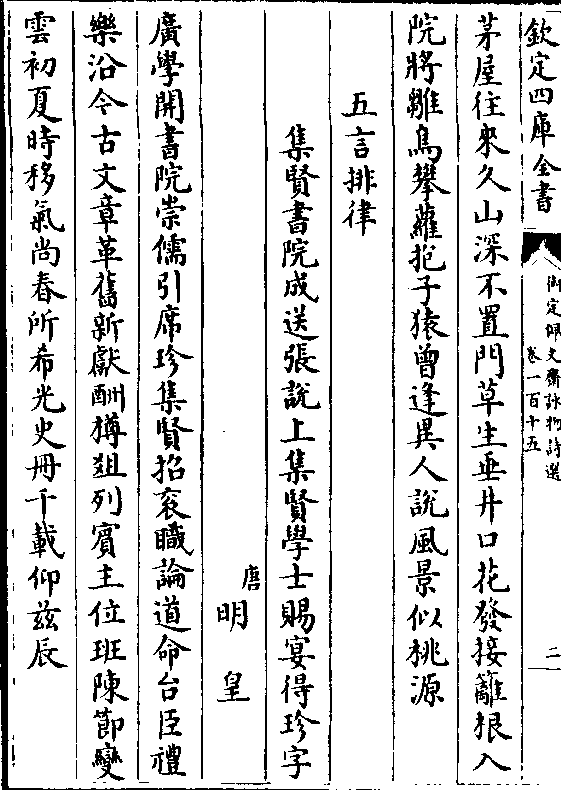 欽定四庫全書
御定佩文齋詠物詩選
卷一百十五
二
茅屋往來久山深不置門草生垂井口花發接籬根入
院將雛鳥攀蘿抱子猿曾逢異人說風景似桃源
五言排律
集賢書院成送張說上集賢學士賜宴得珍字
唐 明皇
廣學開書院崇儒引席珍集賢招衮職論道命台臣禮
樂沿今古文章革舊新獻酬樽俎列賓主位班陳節變
雲初夏時移氣尚春所希光史冊千載仰兹辰